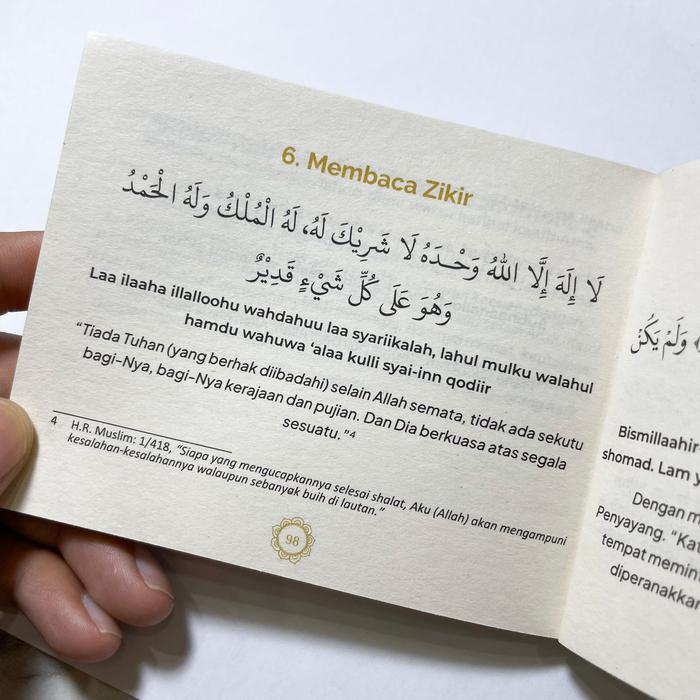 6. Membaca Zikir
لَا إِلَهَ إِلَّا اللهُ وَحْدَهُ لَا شَرِيْكَ لَهُ، لَهُ الْمُلْكُ وَلَهُ الْحَمْدُ
وَهُوَ عَلَى كُلِّ شَيْءٍ قَدِيْرٌ
Laa ilaaha illalloohu wahdahuu laa syariikalah, lahul mulku walahul
hamdu wahuwa ‘alaa kulli syai-inn qodiir
“Tiada Tuhan (yang berhak diibadahi) selain Allah semata, tidak ada sekutu
bagi-Nya, bagi-Nya kerajaan dan pujian. Dan Dia berkuasa atas segala
sesuatu.”4
4 H.R. Muslim: 1/418, “Siapa yang mengucapkannya selesai shalat, Aku (Allah) akan mengampuni
kesalahan-kesalahannya walaupun sebanyak buih di lautan.”
98
وَلَمْ يَكُنْ
Bismillaahir
shomad. Lam y
Dengan m
Penyayang. “Kat
tempat memin
diperanakkan